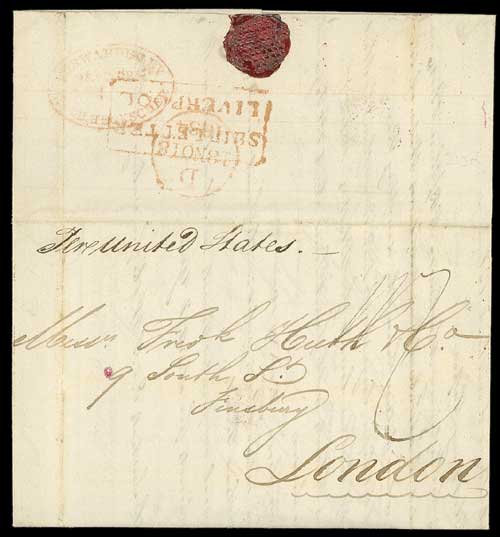 FORWARDED BY
LIVERPOOL
SHIP LETTER
Pere United States.
Messrs Fredk Huth & Co.
9 South St
Finsbury
London